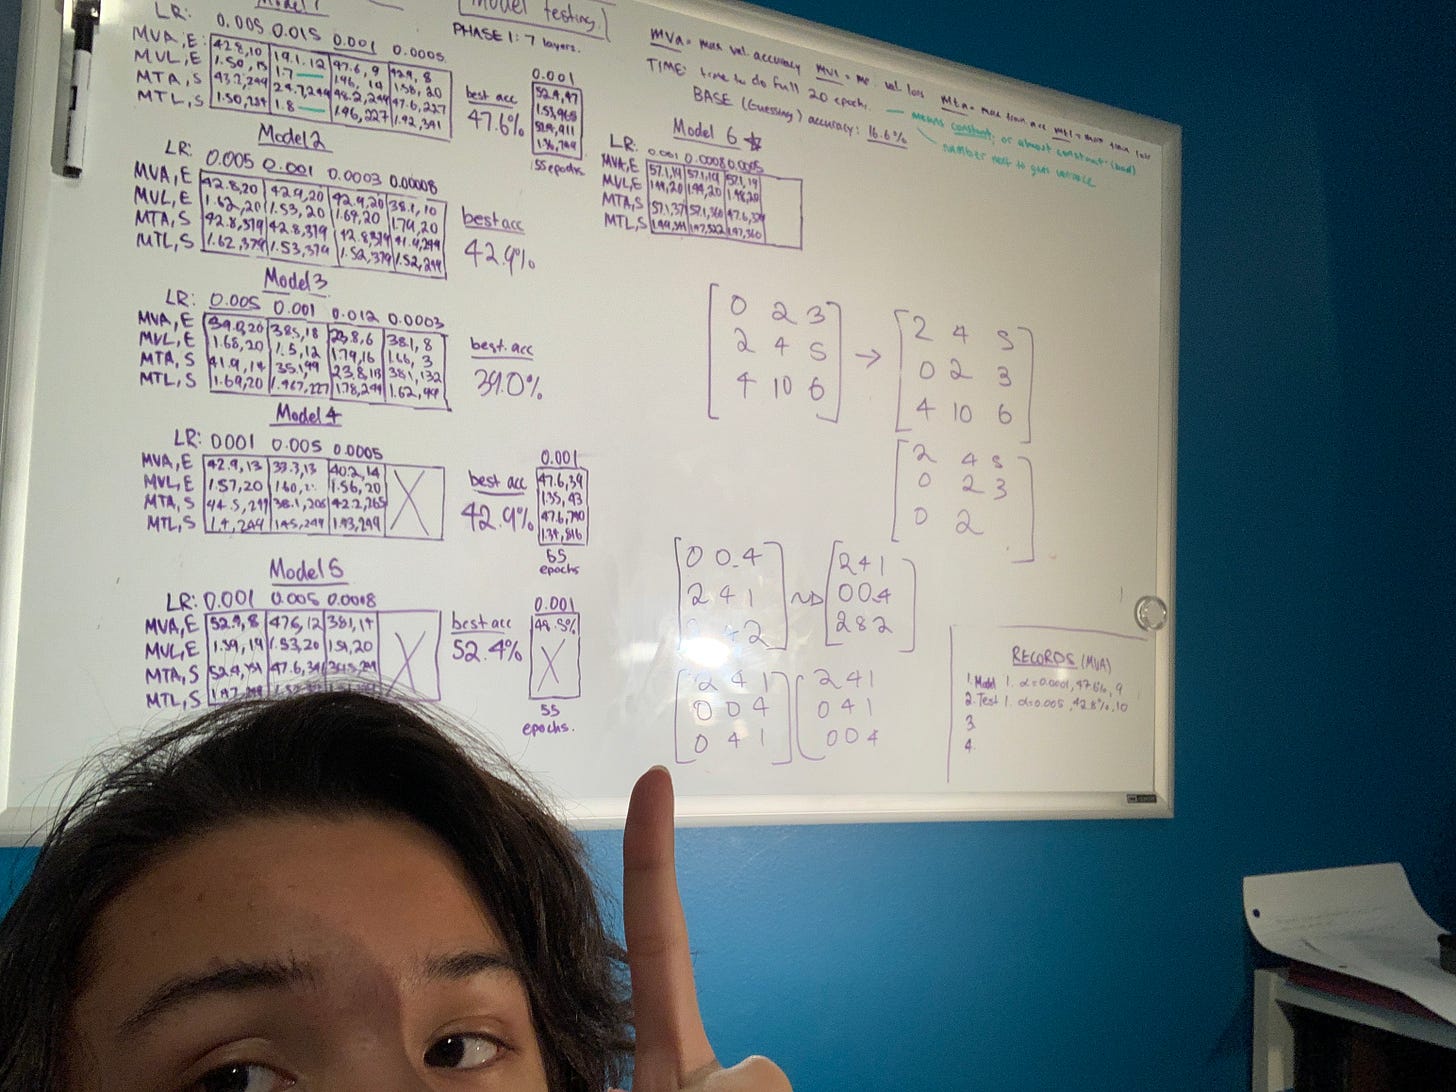 Model 1
LR: 0.005 0.015 0.001 0.0005
MVA, E: 42.8, 10 19.1, 12 47.6, 9 42.9, 8
MVL, E 1.50, 15 1.7 1.46, 19 1.58, 20
MTA, S 43.2, 299 24.7, 299 48.2, 299 47.6, 227
MTL, S 1.50, 289 1.8 1.46, 227 1.42, 341
Model testing.
PHASE 1: 7 layers.
best acc
47.6%
0.001
52.4, 47
1.53, 968
52.4, 911
1.36, 799
55 epochs
Model 2
LR: 0.005 0.001 0.0003 0.00008
MVA, E 42.8, 20 42.9, 20 42.9, 20 38.1, 10
MVL, E 1.62, 20 1.53, 20 1.69, 20 1.74, 20
MTA, S 42.8, 379 42.8, 379 42.8, 379 41.9, 299
MTL, S 1.62, 379 1.53, 379 1.52, 379 1.52, 299
best acc
42.9%
Model 3
LR: 0.005 0.001 0.012 0.0003
MVA, E 39.0, 20 38.5, 18 23.8, 6 38.1, 8
MVL, E 1.68, 20 1.5, 12 1.79, 16 1.66, 3
MTA, S 41.9, 19 35.1, 99 23.8, 113 38.1, 132
MTL, S 1.69, 20 1.467, 227 1.78, 299 1.62, 99
best. acc
39.0%
Model 4
LR: 0001 0.005 0.0005
MVA, E 42.9, 13 33.3, 13 40.2, 14
MVL, E 1.57, 20 1.60, 1.56, 20
MTA, S 44.5, 299 38.1, 208 42.2, 265
MTL, S 1.4, 299 1.45, 299 1.43, 299
best acc
42.9%
0.001
47.6, 39
1.35, 43
47.6, 740
1.34, 816
55
epochs
Model 5
LR: 0.001 0.005 0.0008
MVA, E 52.4, 8 47.6, 12 38.1, 17
MVL, E 1.39, 19 1.53, 20 1.51, 20
MTA, S 52.4, 151 47.6, 341
MTL, S
best acc
52.4%
0.001
48.5%
55
epochs.
MVA = max val. accuracy MVL = min val. loss MTA = max train acc MTL = min train loss
TIME: time to do full 20 epochs. — means constant, or almost constant (bad)
BASE (Guessing) accuracy: 16.6% number next to gives variance
Model 6
LR: 0.001 0.0008 0.0005
MVA, E 57.1, 19 57.1, 19 52.1, 19
MVL, E 1.49, 20 1.49, 20 1.48, 20
MTA, S 57.1, 37 57.1, 360 47.6, 379
MTL, S 1.49, 341 1.47, 322 1.47, 360
0 2 3
2 4 5 →
4 10 6
2 4 5
0 2 3
4 10 6
2 4 5
0 2 3
0 2
0 0 4
2 4 1
2 4 1
0 0 4
2 8 2
2 4 1
0 0 4
0 4 1
2 4 1
0 4 1
0 0 4
RECORDS (MVA)
1. Model 1. α=0.0001, 47.6%, 9
2. Test 1. α=0.005, 42.8%, 10
3
4.